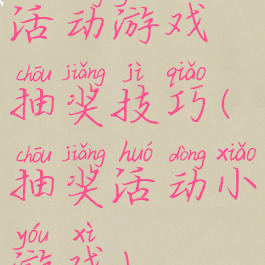 活动游戏
chōu jiǎng jì qiǎo
抽奖技巧(
chōu jiǎng huó dòng xiǎo
抽奖活动小
yóu xì
游戏)